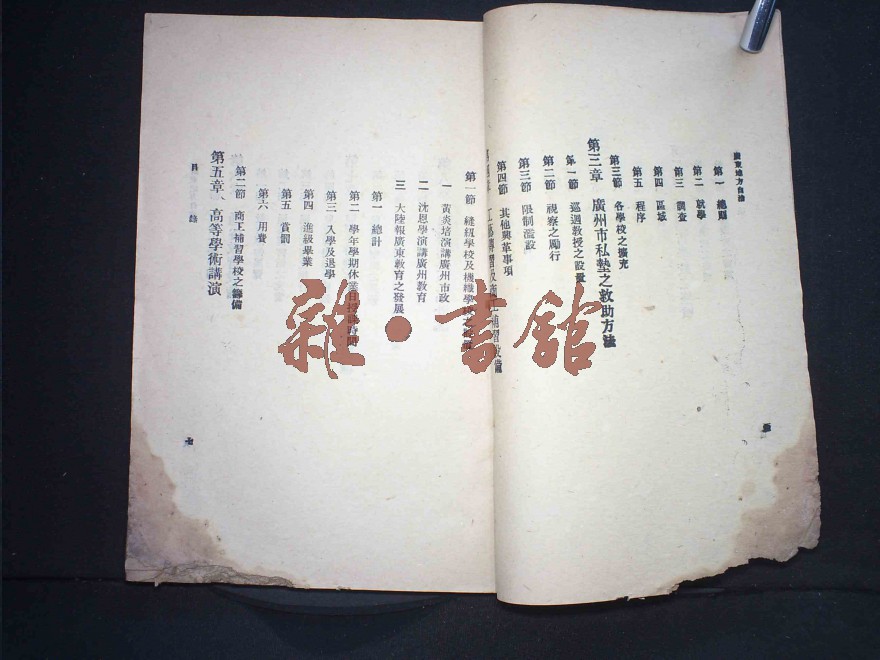 廣東地方自治
第一 總則
第二 就學
第三 調查
第四 區域
第五 程序
第三節 各學校之擴充
第三章 廣州市私塾之救助方法
第一節 巡迴教授之設置
第二節 視察之勵行
第三節 限制濫設
第四節 其他興革事項
工藝傳習及商工補習設備
第一節 縫紉學校及機織學校之
一 黃炎培演講廣州市政
二 沈恩孚演講廣州教育
三 大陸報廣東教育之發展
第一 總計
第二 學年學期休業日授課時間
第三 入學及退學
第四 進級畢業
第五 賞罰
第六 用費
第二節 商工補習學校之籌備
第五章 高等學術講演
目 錄
七
雜·書館